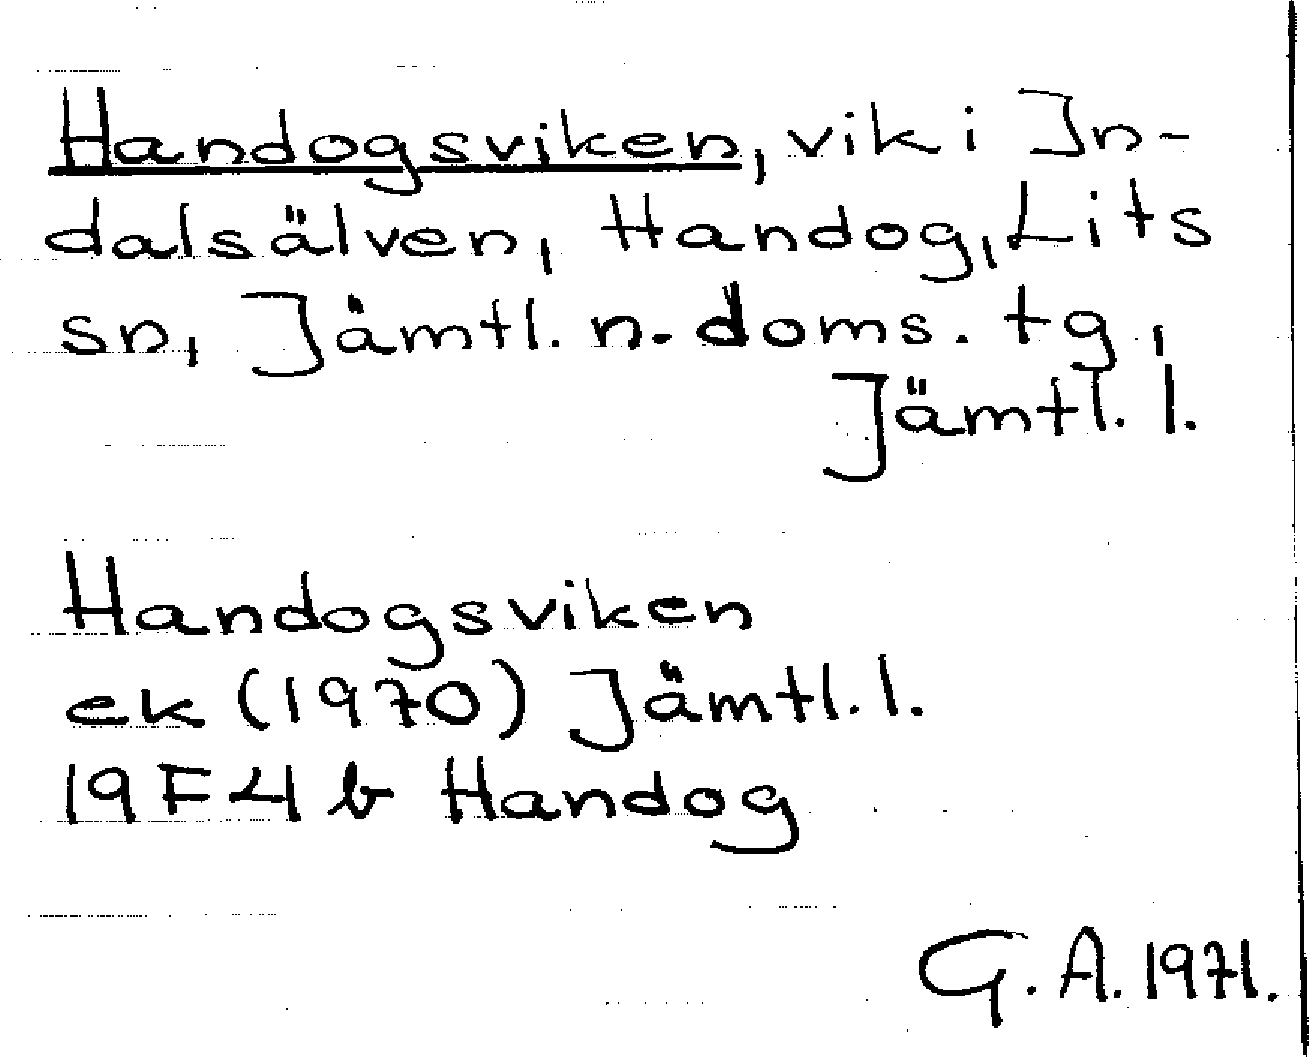 Handogsviken, vik i In-
dalsälven, Handog, Lits
sn, Jämtl. n. doms. tg,
Jämtl. l.
Handogsviken
ek (1970) Jämtl. l.
19 F 4 b Handog
G. A. 1971.